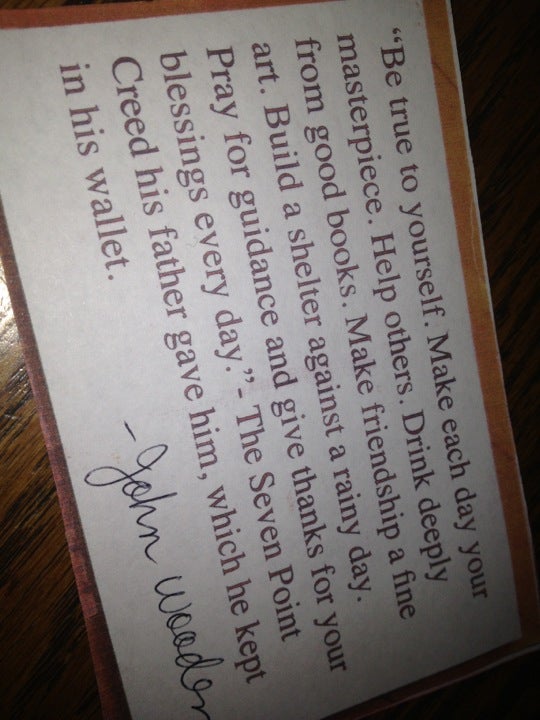 “Be true to yourself. Make each day your
masterpiece. Help others. Drink deeply
from good books. Make friendship a fine
art. Build a shelter against a rainy day.
Pray for guidance and give thanks for your
blessings every day.” - The Seven Point
Creed his father gave him, which he kept
in his wallet.
- John Wooden